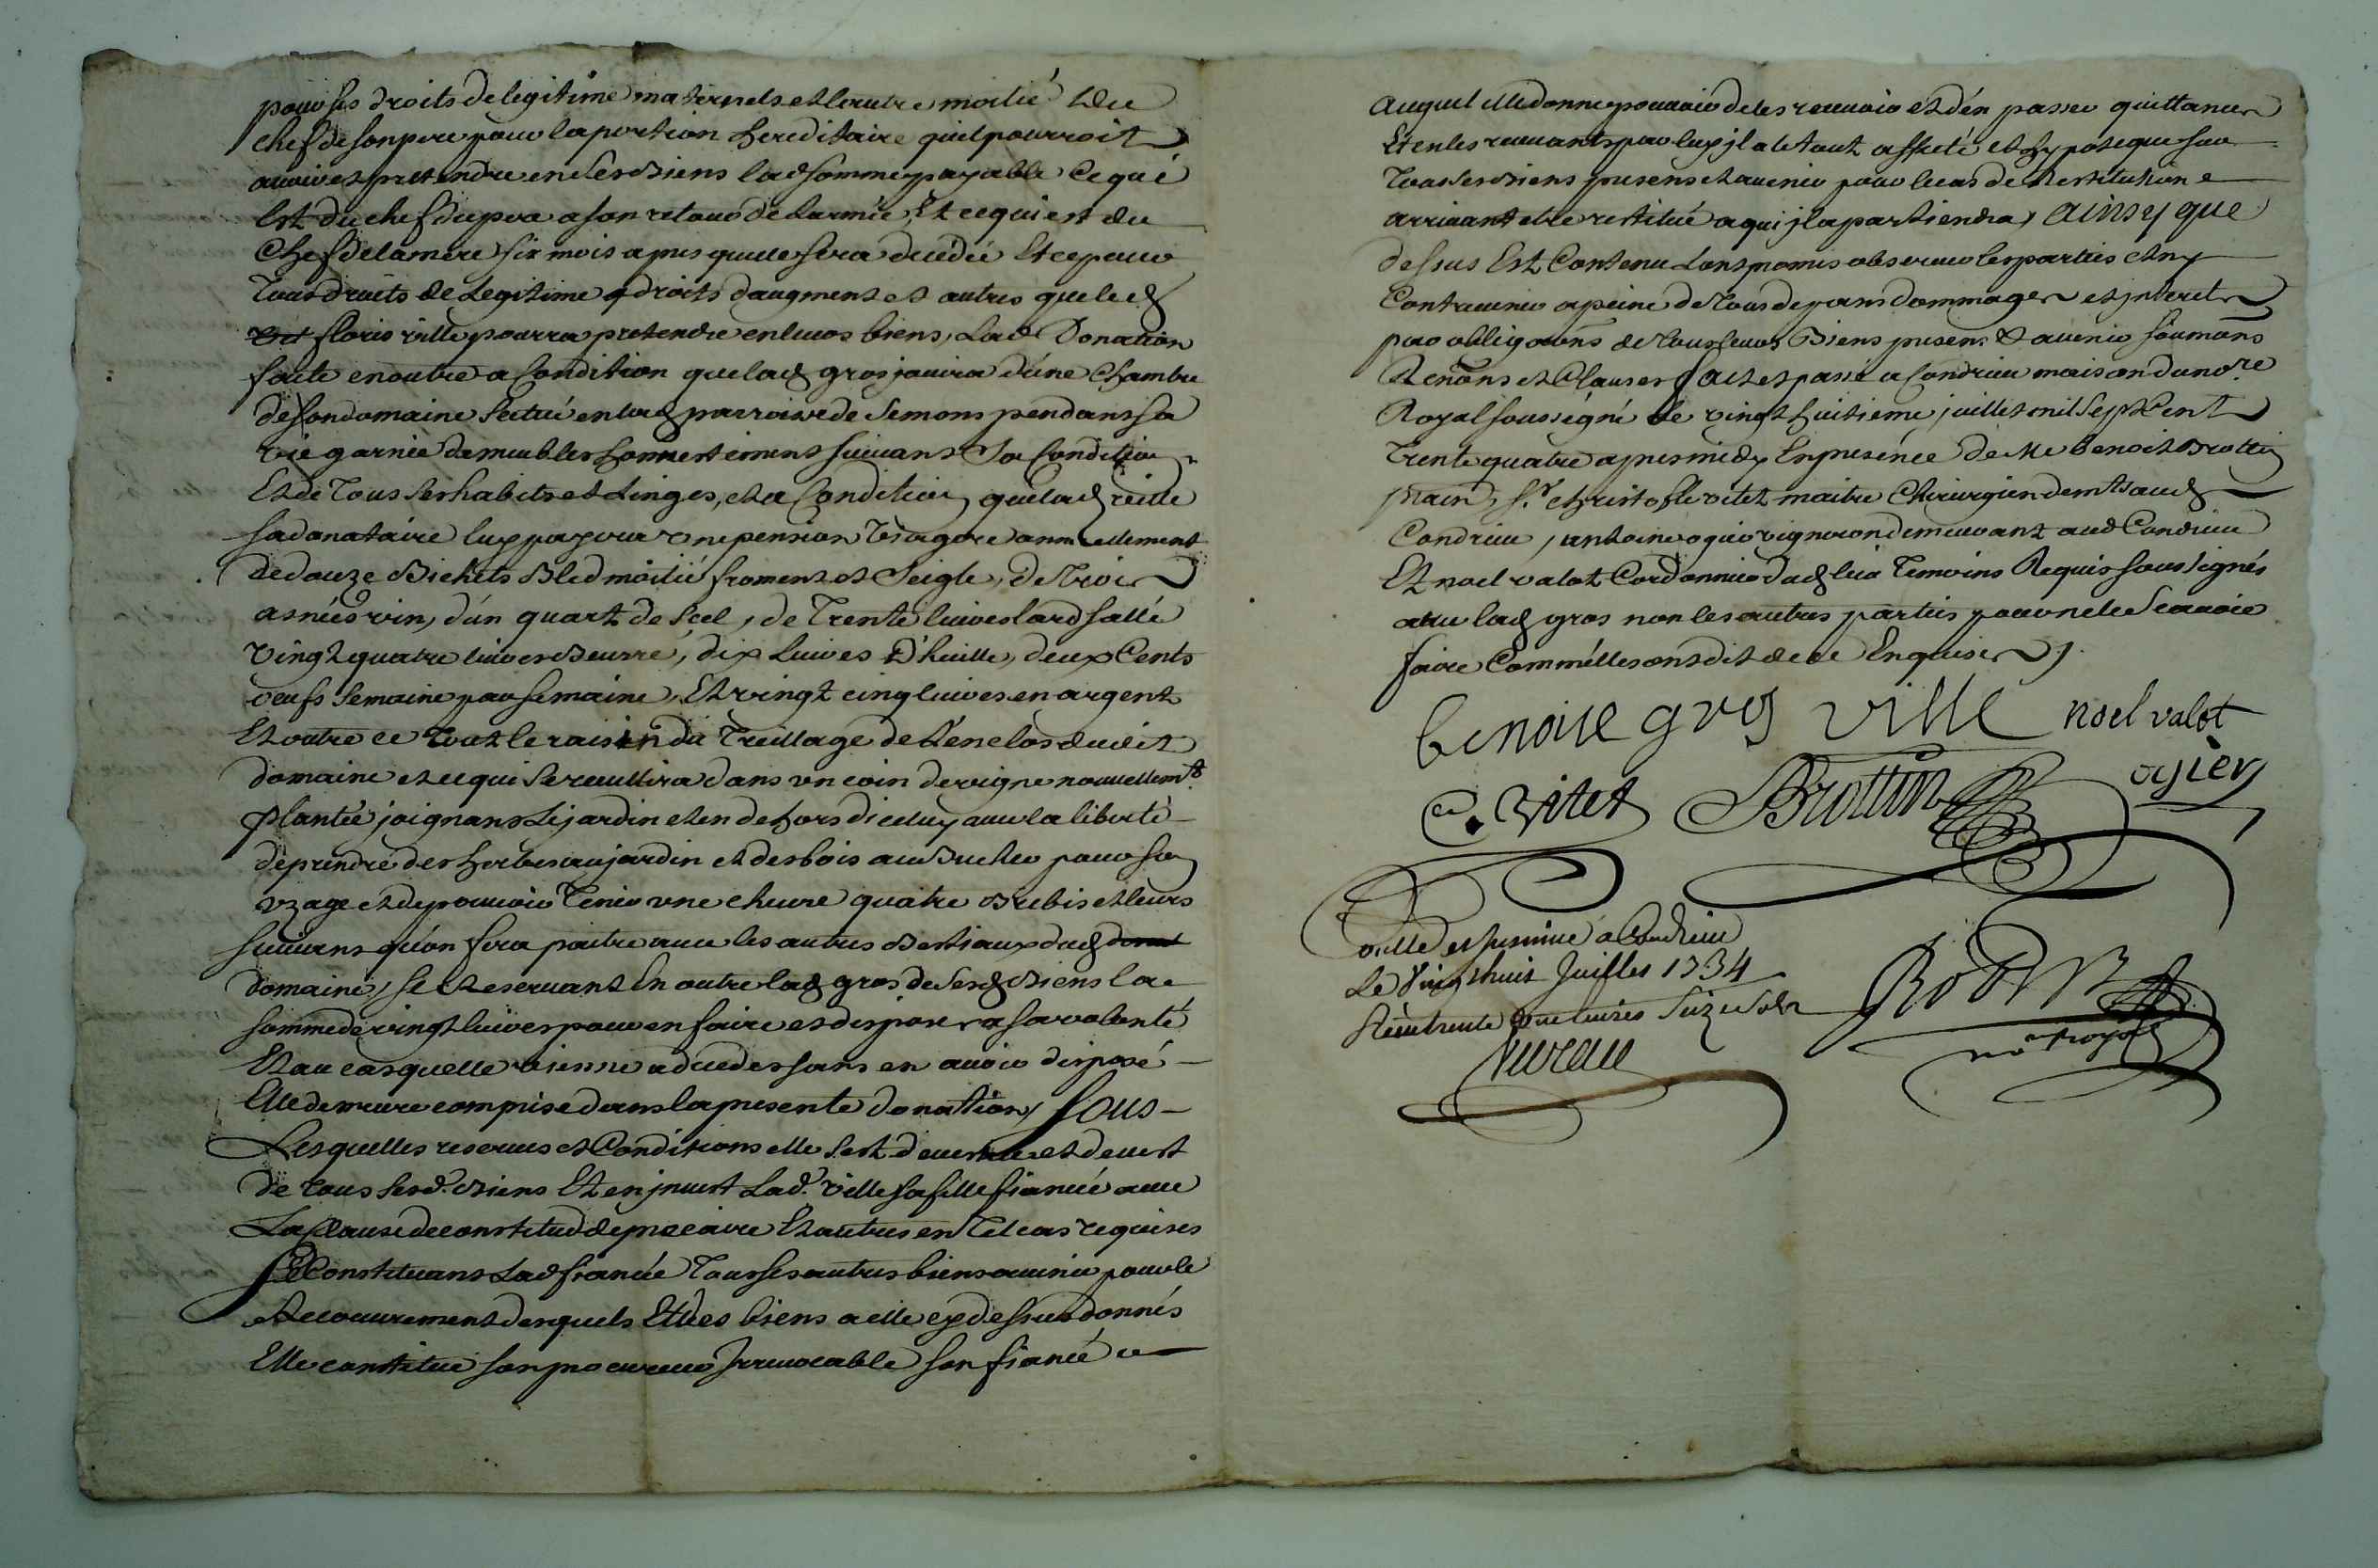 pour ses droits de legitime maternels et lautre moitié du
chef de son pere pour la portion hereditaire quil pourroit
avoir et pretendre en ses biens lad somme payable ce qui
Est du chef du pere a son retour de larmée, Et ce qui est du
Chef de la mere six mois apres quelle sera decedée Et ce pour
Tous droits de Legitime droits daugment et autres que led
floris ville pourra pretendre en leurs biens, Lad Donation
faite en outre a Condition que lad gros jouira d'une Chambre
de son domaine scitué en lad parroisse de Semons pendant sa
vie garnie de meubles honnestement suivant Sa Condition
Et de Tous ses habits et Linges, et a Condition que lad ville
sa donataire luy payera une pension viagere annuellement
de douze Bichets Bled moitié froment et Seigle, de Trois
asnées vin, d'un quart de Scel, de Trente livres lard sallé
vingt quatre livres Beurre, dix Livres D'huille, deux Cents
oeufs Semaine par Semaine, Et vingt cinq livres en argent
Et outre ce Tout le raisin du Treillage de L'enclos dudit
domaine et ce qui Se recuillira dans un coin de vigne nouvellemt
plantée joignant Le jardin et en dehors d'iceluy avec la liberté
de prendre des herbes au jardin et des bois au Bucher pour son
uzage et de pouvoir Tenir une chevre quatre Brebis et leurs
suivans qu'on fera paitre avec les autres Bestiaux dud
domaine, se Reservant En outre lad gros de Sesd Biens la
somme de vingt livres pour en faire et disposer a sa volonté
Et au cas quelle vienne a deceder sans en avoir disposé
Elle demeure comprise dans la presente donation, Sous
Lesquelles reserves et Conditions elle s'est devestue et devest
de tous sesd. Biens Et en jnvest Lad. ville sa fille fiancée avec
La Clause de constitud de precaire Et autres en Tel cas requises
Se Constituant Lad fiancée Tous ses autres biens avenir pour le
Recouvrement desquels Et des biens a elle cy dessus donnés
Elle constitue son procureur Irrevocable son fiancé
Auquel elle donne pouvoir de les recevoir et d'en passer quittances
Et en les recevants par luy jl a le tout assuré et hypotequé sur
Tous ses Biens presens et avenir pour le cas de Restitution
arrivant etre restitué a qui jl apartiendra, Ainsy que
dessus Est Contenu L'ont promis observer les parties et n'y
Contrevenir a peine de Tous depans dommages et jnterets
par obligaons de Tous leurs Biens presens & avenir soumons
Renons et Clauses fait et passé a Condrieu maison du nore
Royal soussigné Le vingt huitieme juillet mil Sept Cent
Trente quatre apres midy En presence de Me benoit Brottin
, Sr christofle vitet maitre Chirurgien demt aud
Condrieu, antoine ogier vigneron demeurant aud Condrieu
Et noel valot Cordonnier dud lieu Temoins Requis soussignés
avec lad gros non les autres parties pour ne le Scavoir
faire Comm'elles ont dit de ce Enquises.
benoite gros ville noel valot
C. vitet Brottin ogier
Controllé et Insinué a Condrieu
Le Vingt huit Juillet 1734
Receu trente livres Seize Sols